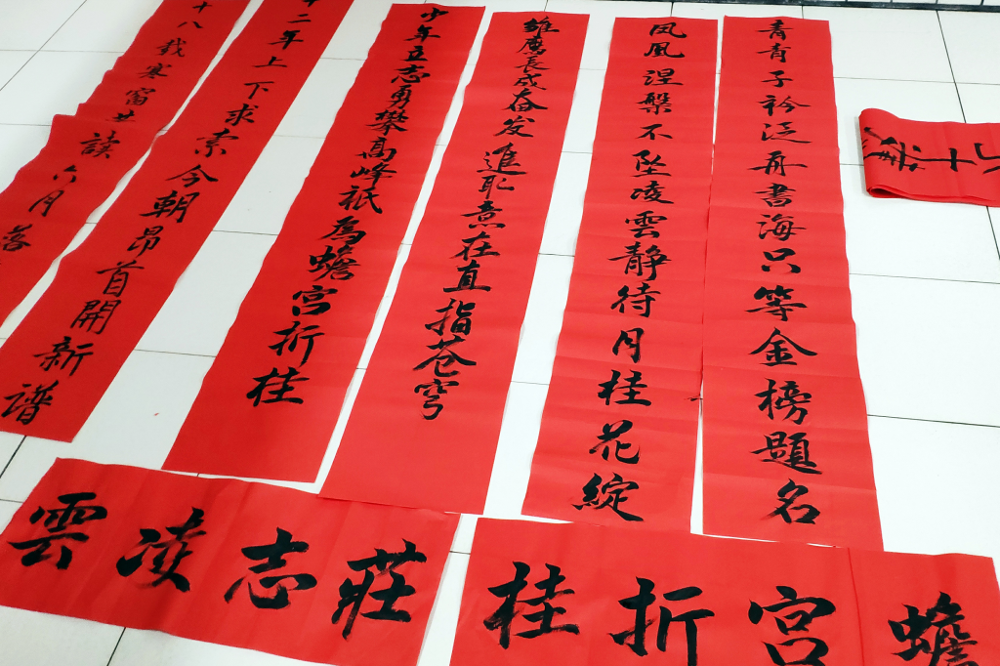 青青子衿泛舟書海只等金榜題名
凤凰涅槃不坠凌雲静待月桂花綻
雄鷹長成奋发進取意在直指苍穹
少年立志勇攀高峰祇為蟾宫折桂
十二年上下求索今朝昂首開新譜
十八載寒窗苦讀六月落
蟾宫折桂
莊志凌雲